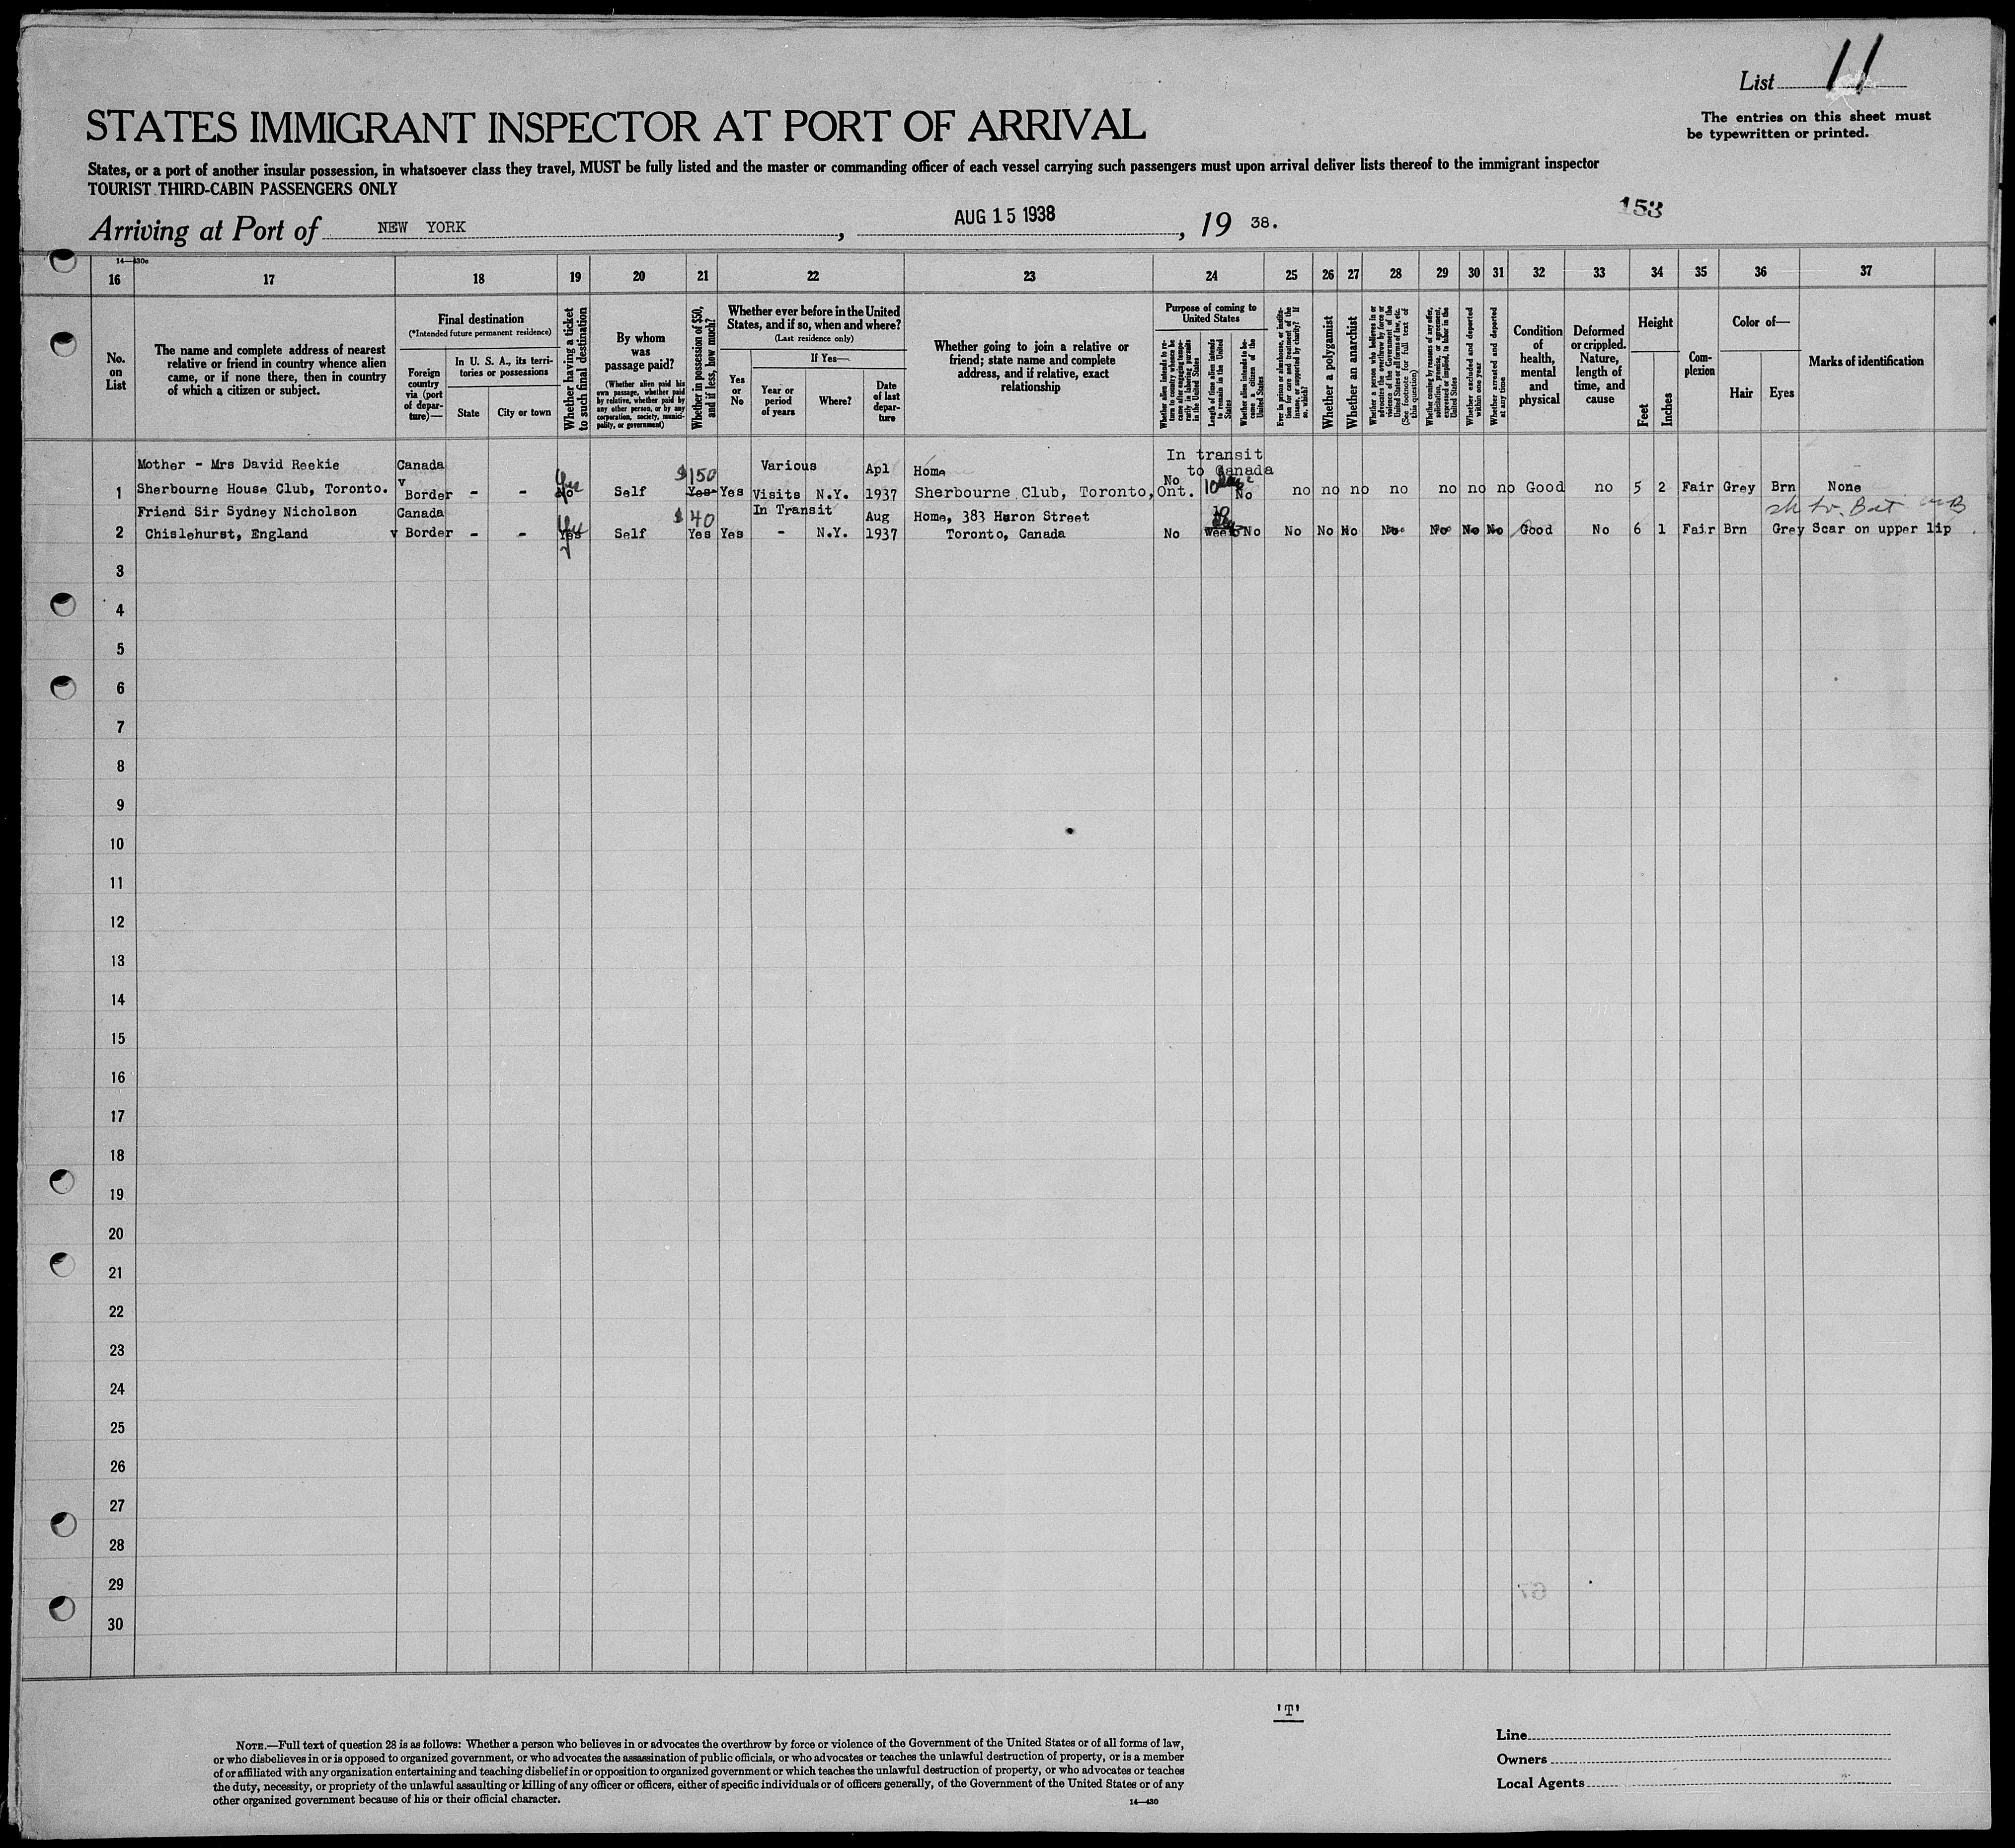 List 11
The entries on this sheet must
be typewritten or printed.
STATES IMMIGRANT INSPECTOR AT PORT OF ARRIVAL
States, or a port of another insular possession, in whatsoever class they travel, MUST be fully listed and the master or commanding officer of each vessel carrying such passengers must upon arrival deliver lists thereof to the immigrant inspector
TOURIST THIRD-CABIN PASSENGERS ONLY
153
Arriving at Port of NEW YORK, AUG 15 1938, 19 38.
14—430c
16 17 18 19 20 21 22 23 24 25 26 27 28 29 30 31 32 33 34 35 36 37
No.
on
List
The name and complete address of nearest
relative or friend in country whence alien
came, or if none there, then in country
of which a citizen or subject.
Final destination
(*Intended future permanent residence)
Foreign
country
via (port
of depar-
ture)—
In U. S. A., its terri-
tories or possessions
State
City or town
Whether having a ticket
to such final destination
By whom
was
passage paid?
(Whether alien paid his
own passage, whether paid
by relative, whether paid by
any other person, or by any
corporation, society, munici-
pality, or government)
Whether in possession of $50,
and if less, how much?
Whether ever before in the United
States, and if so, when and where?
(Last residence only)
Yes
or
No
If Yes—
Year or
period
of years
Where?
Date
of last
depar-
ture
Whether going to join a relative or
friend; state name and complete
address, and if relative, exact
relationship
Purpose of coming to
United States
Whether alien intends to re-
turn to country whence he
came after engaging tempo-
rarily in laboring pursuits
in the United States
Length of time alien intends
to remain in the United
States
Whether alien intends to be-
come a citizen of the
United States
Ever in prison or almshouse, or institu-
tion for care and treatment of the
insane, or supported by charity? If
so, which?
Whether a polygamist
Whether an anarchist
Whether a person who believes in or
advocates the overthrow by force or
violence of the Government of the
United States or all forms of law, etc.
(See footnote for full text of
this question)
Whether coming by reasons of any offer,
solicitation, promise, or agreement,
expressed or implied, to labor in the
United States
Whether excluded and deported
within one year
Whether arrested and deported
at any time
Condition
of
health,
mental
and
physical
Deformed
or crippled.
Nature,
length of
time, and
cause
Height
Feet
Inches
Com-
plexion
Color of—
Hair
Eyes
Marks of identification
In transit
Mother - Mrs David Reekie Canada $150 Various Apl Home to Canada
1 Sherbourne House Club, Toronto. v Border - - No Yes Self Yes Yes Visits N.Y. 1937 Sherbourne Club, Toronto, Ont. No 10 days No no no no no no no no Good no 5 2 Fair Grey Brn None
Friend Sir Sydney Nicholson Canada $40 In Transit Aug Home, 383 Huron Street 10 days
2 Chislehurst, England v Border - - Yes Yes Self Yes Yes - N.Y. 1937 Toronto, Canada No week No No No No No No No No Good No 6 1 Fair Brn Grey Scar on upper lip
3
4
5
6
7
8
9
10
11
12
13
14
15
16
17
18
19
20
21
22
23
24
25
26
27
28
29
30
'T'
NOTE.—Full text of question 28 is as follows: Whether a person who believes in or advocates the overthrow by force or violence of the Government of the United States or of all forms of law,
or who disbelieves in or is opposed to organized government, or who advocates the assassination of public officials, or who advocates or teaches the unlawful destruction of property, or is a member
of or affiliated with any organization entertaining and teaching disbelief in or opposition to organized government or which teaches the unlawful destruction of property, or who advocates or teaches
the duty, necessity, or propriety of the unlawful assaulting or killing of any officer or officers, either of specific individuals or of officers generally, of the Government of the United States or of any
other organized government because of his or their official character.
14—430
Line
Owners
Local Agents